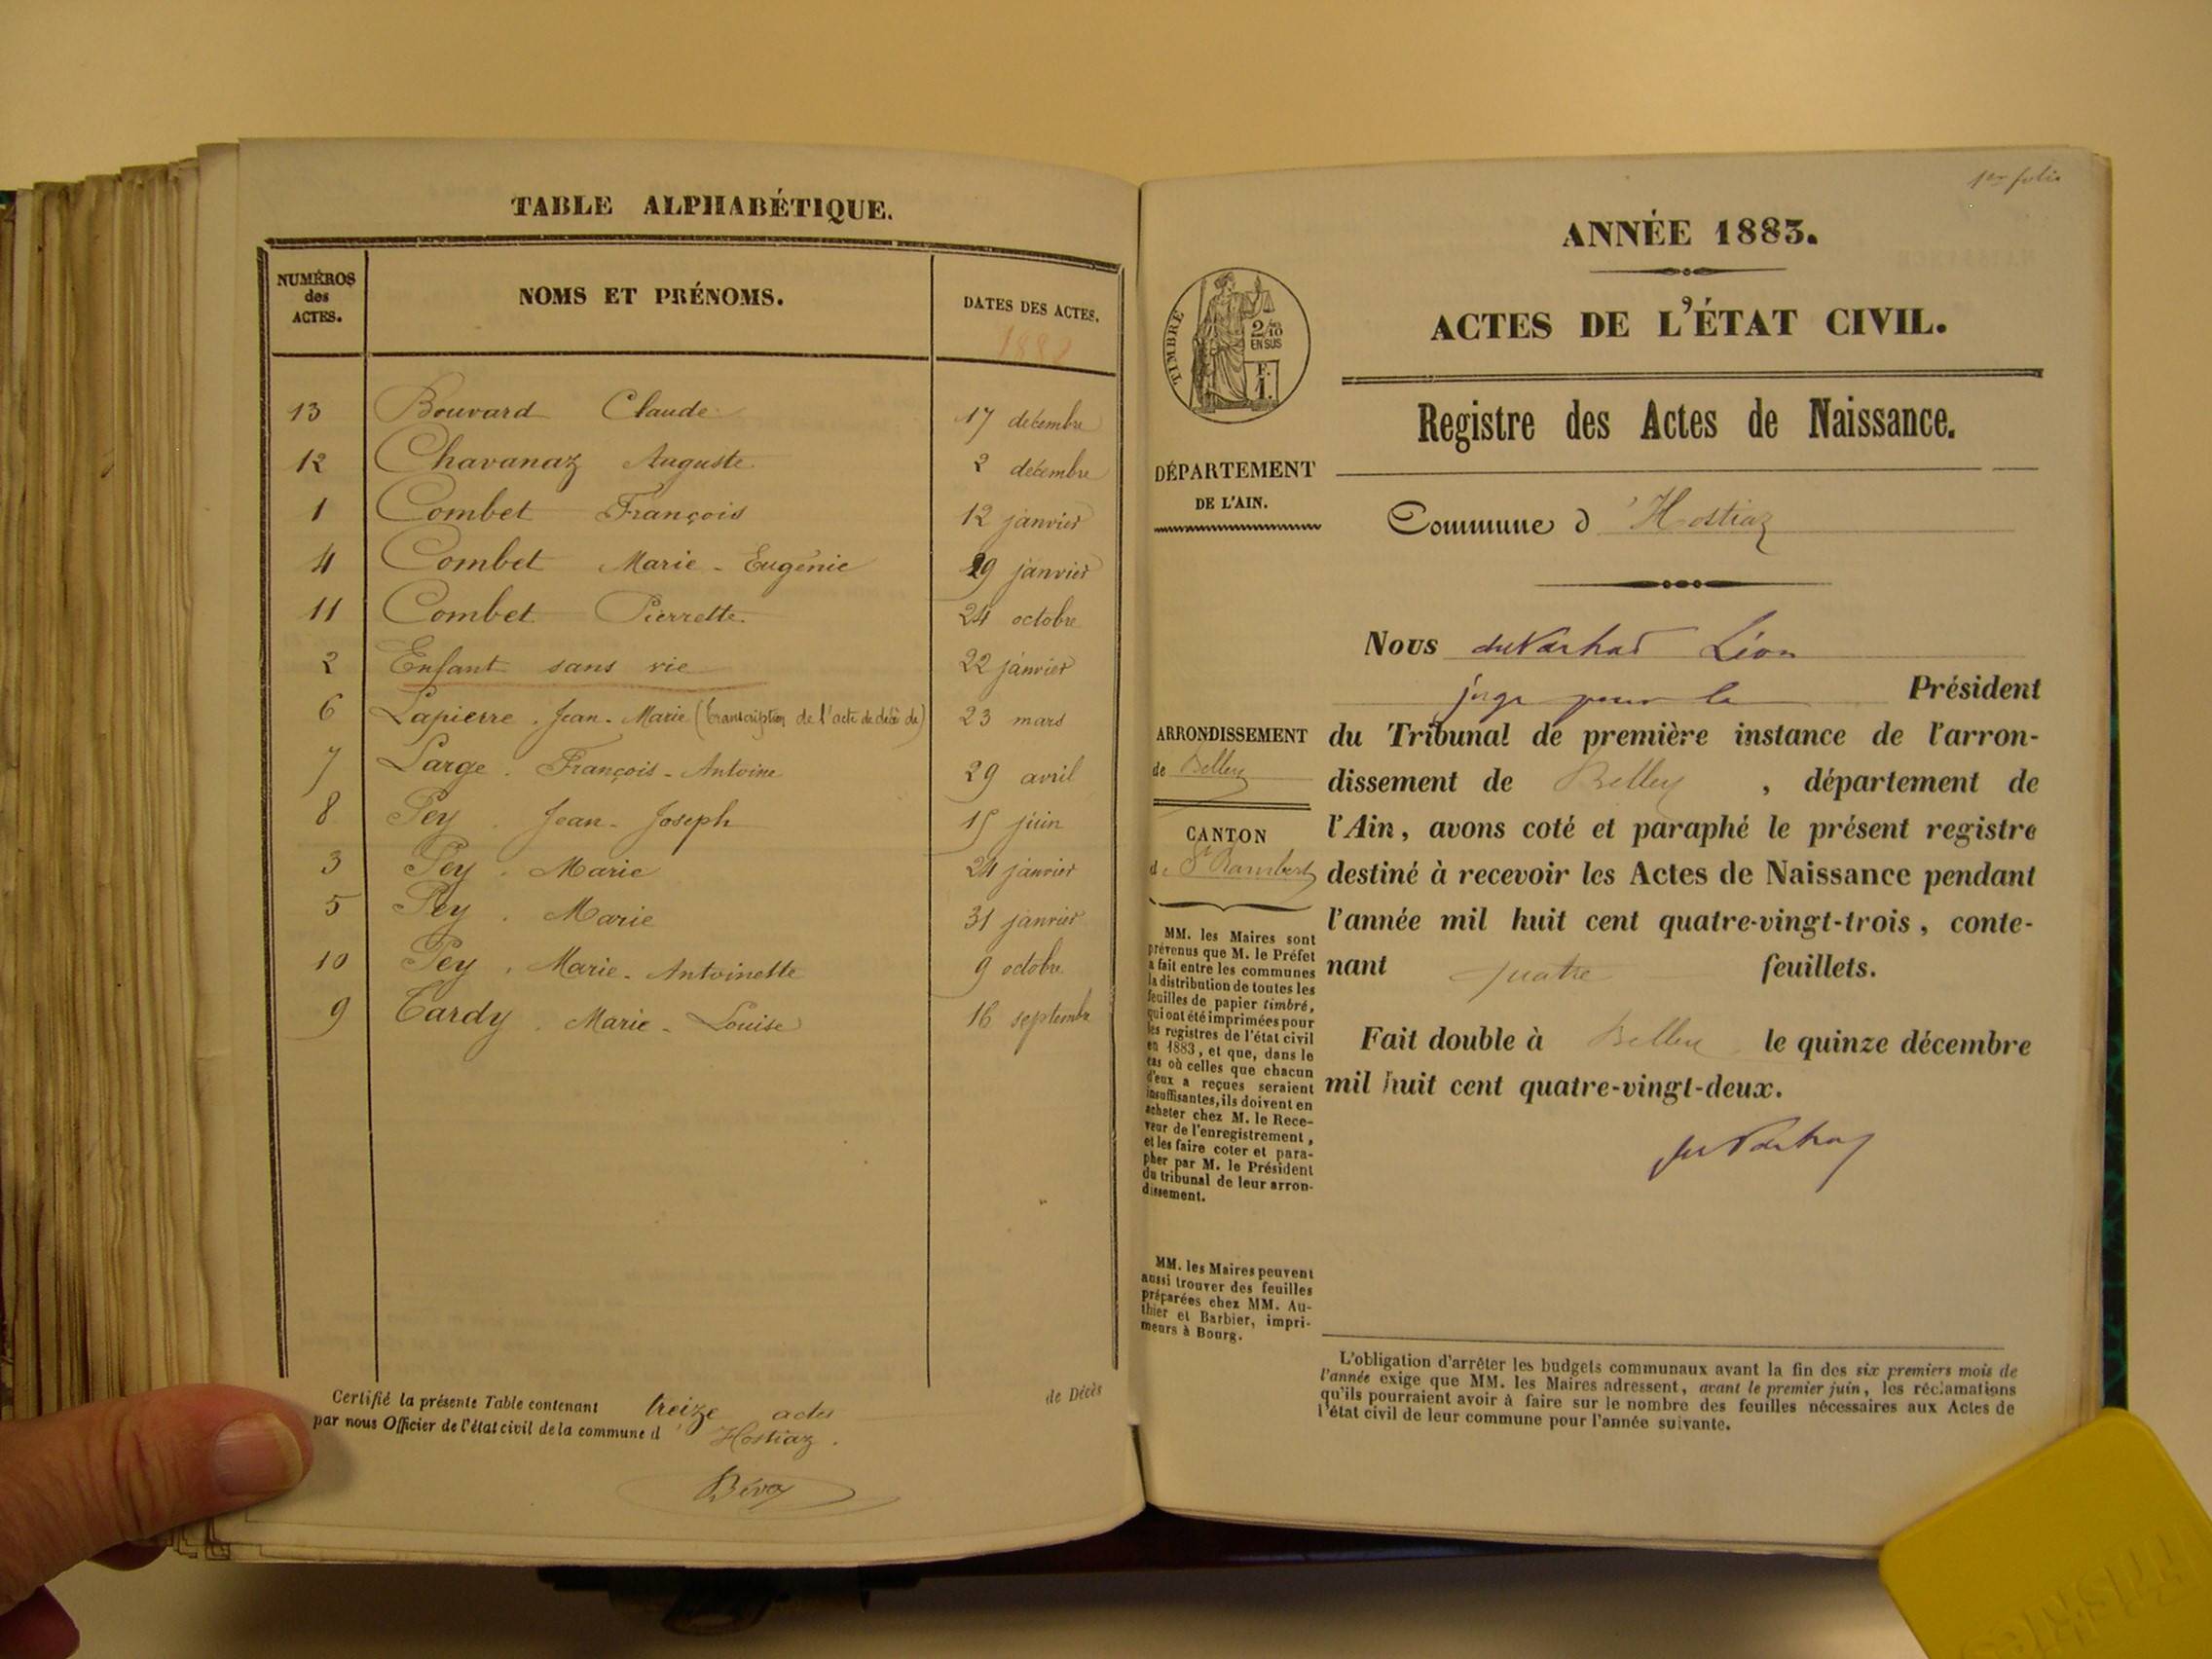 TABLE ALPHABÉTIQUE.
NUMÉROS
des
ACTES.
NOMS ET PRÉNOMS.
DATES DES ACTES.
1882
13 Bouvard Claude 17 décembre
12 Chavanaz Auguste 2 décembre
1 Combet François 12 janvier
4 Combet Marie - Eugénie 29 janvier
11 Combet Pierrette 24 octobre
2 Enfant sans vie 22 janvier
6 Lapierre . Jean - Marie (transcription de l'acte de décès de) 23 mars
7 Large . François - Antoine 29 avril
8 Pey . Jean - Joseph 15 juin
3 Pey . Marie 24 janvier
5 Pey . Marie 31 janvier
10 Pey . Marie - Antoinette 9 octobre
9 Tardy . Marie - Louise 16 septembre
Certifié la présente Table contenant treize actes de Décès
par nous Officier de l'état civil de la commune d'Hostiaz.
1er folio
ANNÉE 1883.
ACTES DE L'ÉTAT CIVIL.
TIMBRE
2/10
EN SUS
F.
1.
Registre des Actes de Naissance.
DÉPARTEMENT
DE L'AIN.
Commune d'Hostiaz
Nous Léon
juge pour le Président
ARRONDISSEMENT
de Belley
CANTON
de St Rambert
du Tribunal de première instance de l'arron-
dissement de Belley, département de
l'Ain, avons coté et paraphé le présent registre
destiné à recevoir les Actes de Naissance pendant
l'année mil huit cent quatre-vingt-trois, conte-
nant quatre feuillets.
Fait double à Belley le quinze décembre
mil huit cent quatre-vingt-deux.
MM. les Maires sont
prévenus que M. le Préfet
a fait entre les communes
la distribution de toutes les
feuilles de papier timbré,
qui ont été imprimées pour
les registres de l'état civil
en 1883, et que, dans le
cas où celles que chacun
d'eux a reçues seraient
insuffisantes, ils doivent en
acheter chez M. le Rece-
veur de l'enregistrement,
et les faire coter et para-
pher par M. le Président
du tribunal de leur arron-
dissement.
MM. les Maires peuvent
aussi trouver des feuilles
préparées chez MM. Au-
thier et Barbier, impri-
meurs à Bourg.
L'obligation d'arrêter les budgets communaux avant la fin des six premiers mois de
l'année exige que MM. les Maires adressent, avant le premier juin, les réclamations
qu'ils pourraient avoir à faire sur le nombre des feuilles nécessaires aux Actes de
l'état civil de leur commune pour l'année suivante.